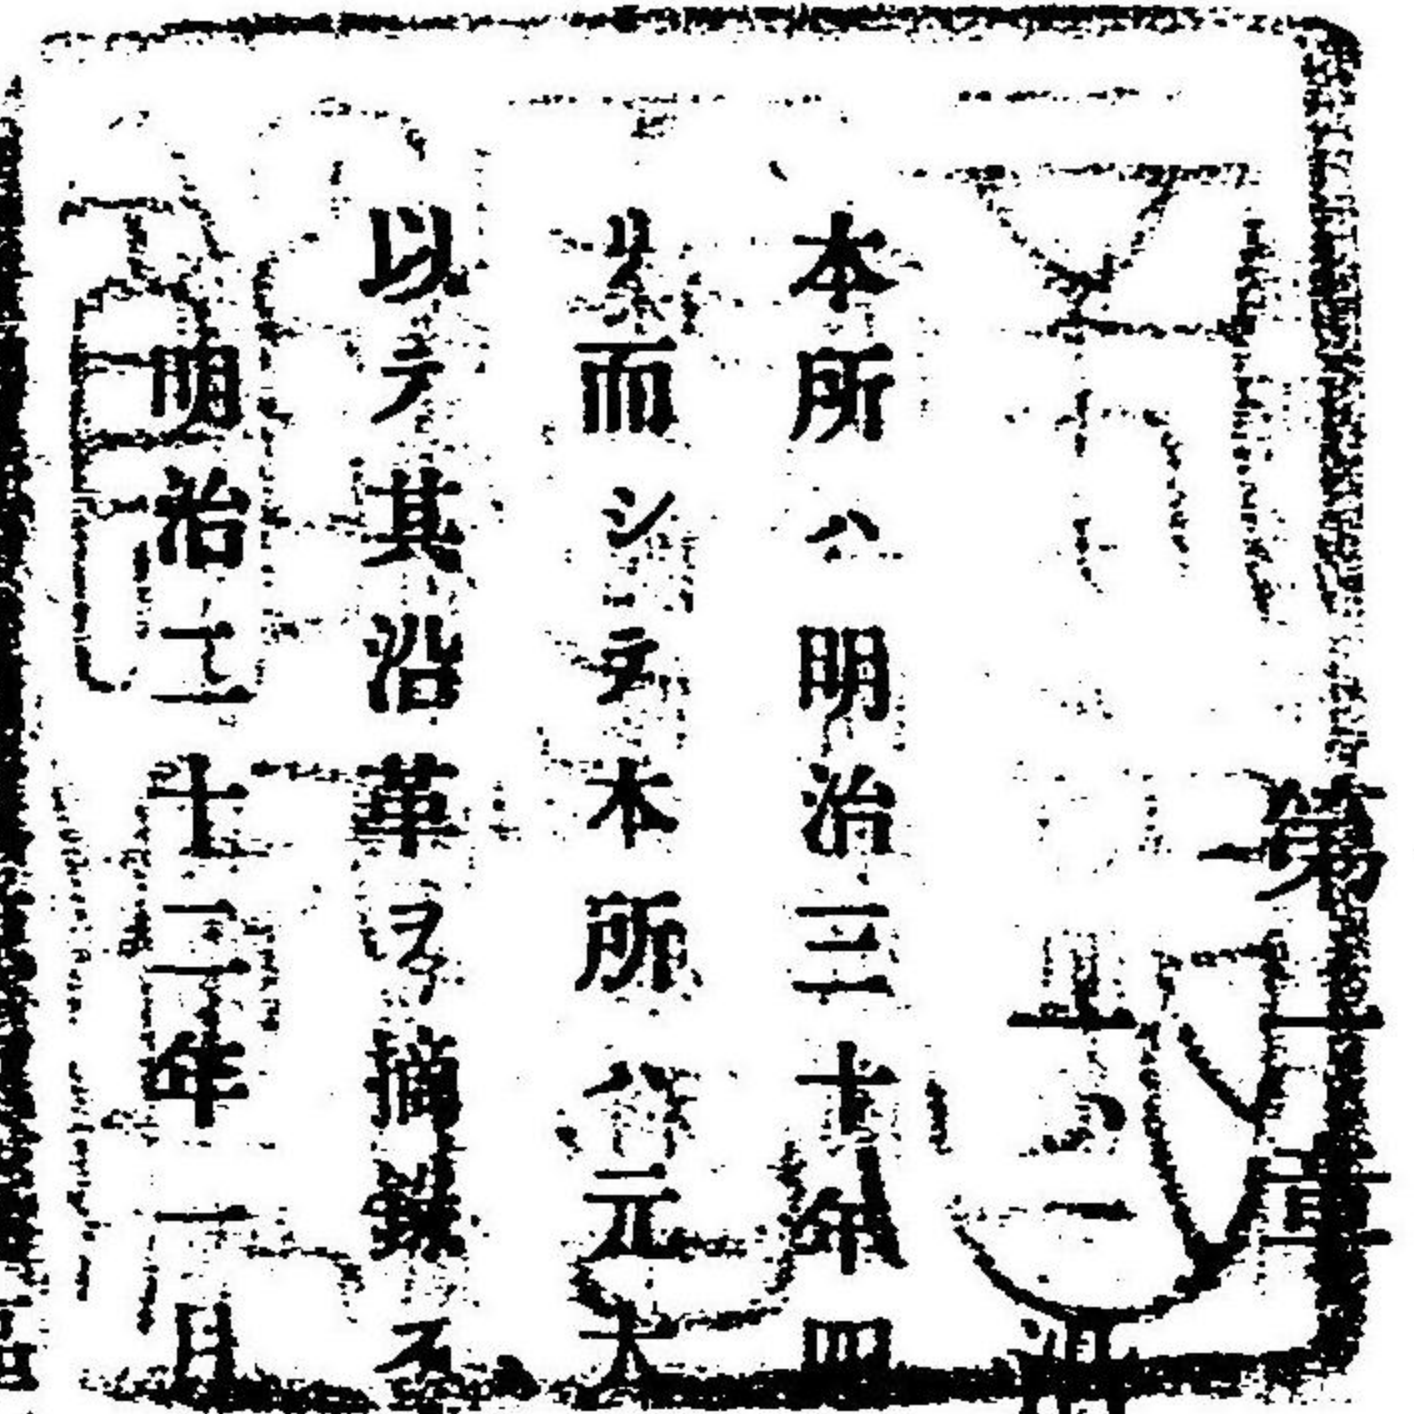 第一章
十一
本所ハ明治三十年四
ス而シテ本所ハ元大
以テ其沿革ヲ摘録ス
明治二十二年一月